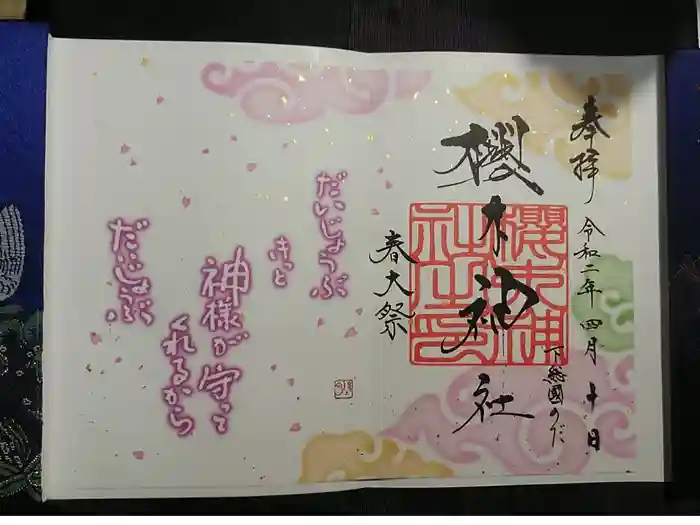 奉拝
令和二年四月十日
下総國のだ
櫻木神社
櫻木神社之印
春大祭
だいじょうぶ
きっと
神様が守って
くれるから
だいじょうぶ